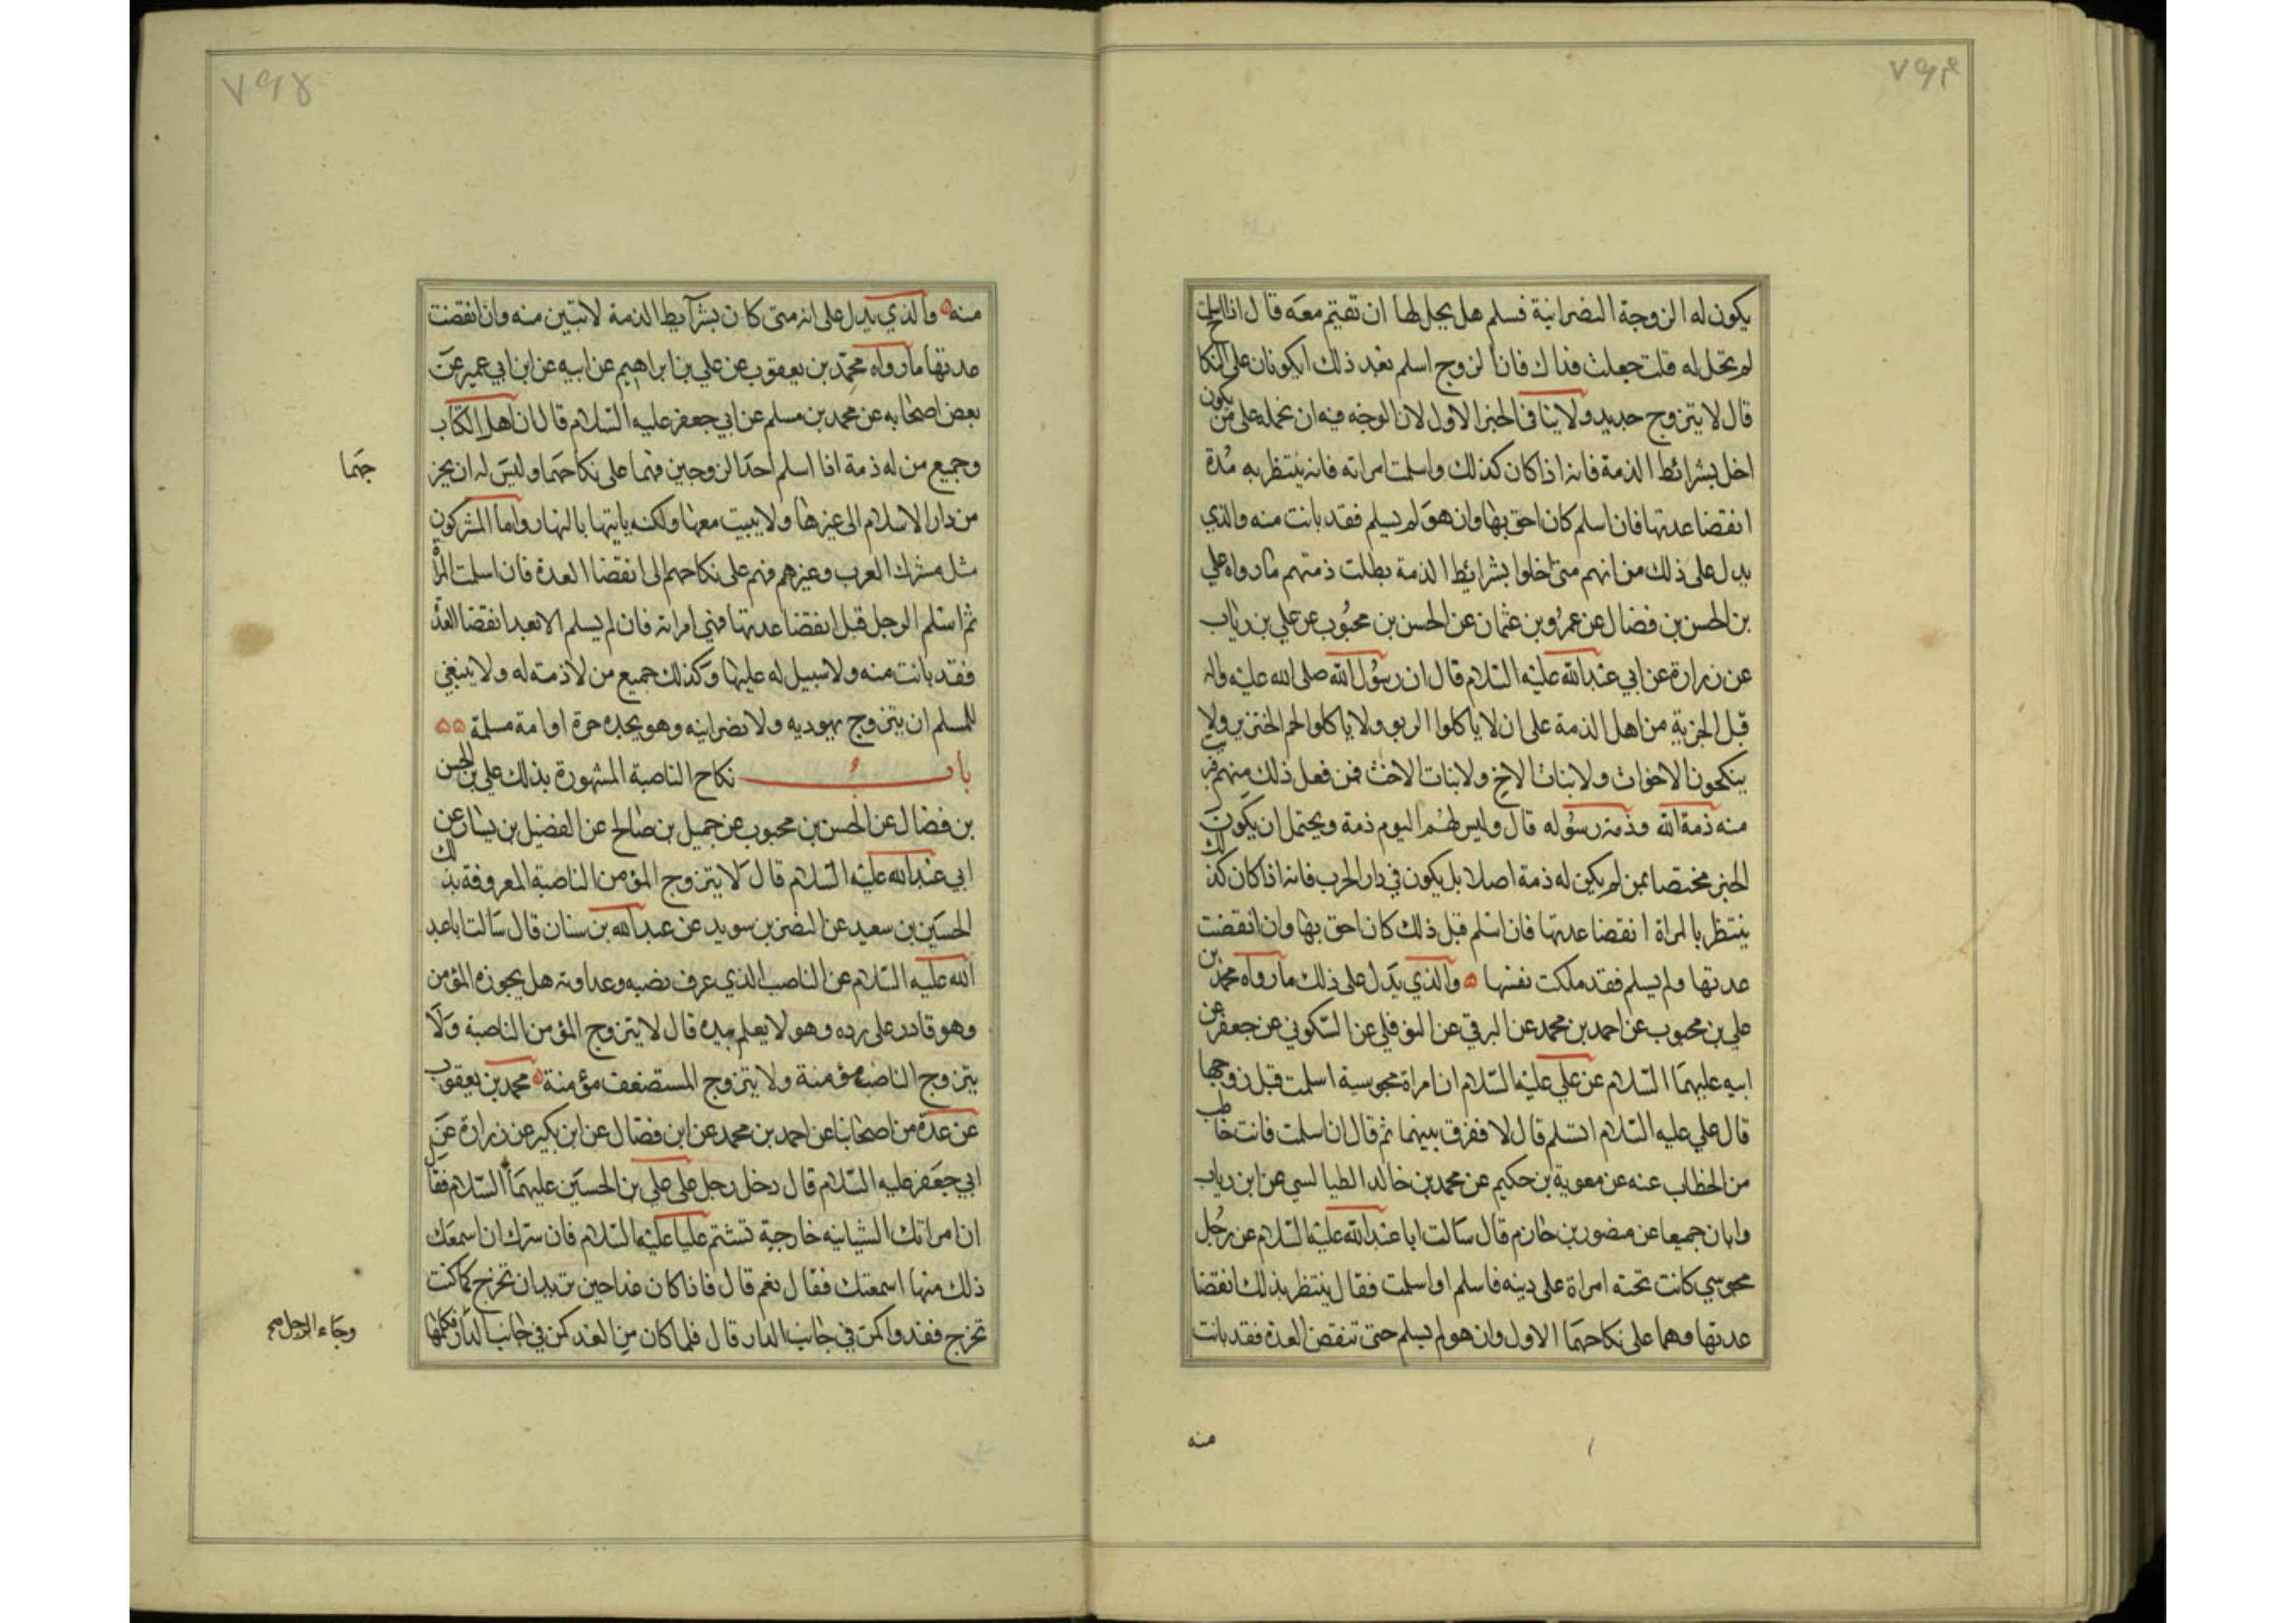 ٧٩٤
يكون له الزوجة النصرانية فسلم هل يحل لها ان تقيم معه قال اذا اسلمت
لم تحل له قلت جعلت فداك فان الزوج اسلم بعد ذلك ايكونان على النكاح
قال لا يتزوج جديد ولا ينافي الخبر الاول لان الوجه فيه ان نحمله على من يكون
اخل بشرائط الذمة فانه اذا كان كذلك واسلمت امراته فانه ينتظر به مدة
انقضا عدتها فان اسلم كان احق بها وان هو لم يسلم فقد بانت منه والذي
يدل على ذلك من انهم متى اخلوا بشرائط الذمة بطلت ذمتهم ما رواه علي
بن الحسن بن فضال عن عمرو بن عثمان عن الحسن بن محبوب عن علي بن رياب
عن زرارة عن ابي عبد الله عليه السلام قال ان رسول الله صلى الله عليه واله
قبل الجزية من اهل الذمة على ان لا ياكلوا الربو ولا ياكلوا لحم الخنزير ولا
ينكحون الاخوات ولا بنات الاخ ولا بنات الاخت فمن فعل ذلك منهم برئت
منه ذمة الله وذمة رسوله قال وليس لهم اليوم ذمة ويحتمل ان يكون
الخبر مختصا بمن لم يكن له ذمة اصلا بل يكون في دار الحرب فانه اذا كان كذلك
ينتظر بالمراة انقضا عدتها فان اسلم قبل ذلك كان احق بها وان انقضت
عدتها ولم يسلم فقد ملكت نفسها والذي يدل على ذلك ما رواه محمد بن
علي بن محبوب عن احمد بن محمد عن البرقي عن النوفلي عن السكوني عن جعفر عن
ابيه عليهما السلام عن علي عليه السلام ان امراة مجوسية اسلمت قبل زوجها
قال علي عليه السلام اتسلم قال لا ففرق بينهما ثم قال ان اسلمت فانت خاطب
من الخطاب عنه عن معوية بن حكيم عن محمد بن خالد الطيالسي عن ابن رياب
وابان جميعا عن منصور بن حازم قال سالت ابا عبد الله عليه السلام عن رجل
مجوسي كانت تحته امراة على دينه فاسلم او اسلمت فقال ينتظر بذلك انقضا
عدتها وهما على نكاحهما الاول وان هو لم يسلم حتى تنقضي العدة فقد بانت
منه
٧٩٥
منه والذي يدل على انه متى كان بشرآيط الذمة لا تبين منه وان انقضت
عدتها ما رواه محمد بن يعقوب عن علي بن ابراهيم عن ابيه عن ابن ابي عمير عن
بعض اصحابه عن محمد بن مسلم عن ابي جعفر عليه السلام قال ان اهل الكتاب
وجميع من له ذمة اذا اسلم احد الزوجين فهما على نكاحهما وليس له ان يخر
جهما
من دار الاسلام الى غيرها ولا يبيت معها ولكنه ياتيها بالنهار واما المشركون
مثل مشرك العرب وغيرهم فهم على نكاحهم الى انقضا العدة فان اسلمت المراة
ثم اسلم الرجل قبل انقضا عدتها فهي امراته فان لم يسلم الا بعد انقضا العدة
فقد بانت منه ولا سبيل له عليها وكذلك جميع من لا ذمة له ولا ينبغي
للمسلم ان يتزوج يهوديه ولا نصرانيه وهو يجد حرة او امة مسلمة
باب نكاح الناصبة المشهورة بذلك علي بن الحسن
بن فضال عن الحسن بن محبوب عن جميل بن صالح عن الفضيل بن يسار عن
ابي عبد الله عليه السلام قال لا يتزوج المؤمن الناصبة المعروفة بذلك
الحسين بن سعيد عن النضر بن سويد عن عبد الله بن سنان قال سالت ابا عبد
الله عليه السلام عن الناصب الذي عرف نصبه وعداوته هل يجوزه المؤمن
وهو قادر على رده وهو لا يعلم برده قال لا يتزوج المؤمن الناصبة ولا
يتزوج الناصب مؤمنة ولا يتزوج المستضعف مؤمنة محمد بن يعقوب
عن عدة من اصحابنا عن احمد بن محمد عن ابن فضال عن ابن بكير عن زرارة عن
ابي جعفر عليه السلام قال دخل رجل على علي بن الحسين عليهما السلام فقال
ان امراتك الشيبانيه خارجية تشتم عليا عليه السلام فان سرك ان اسمعك
ذلك منها اسمعتك فقال نعم قال فاذا كان غدا حين تريد ان تخرج كما كنت
تخرج فعد واكمن في جانب الدار قال فلما كان من الغد كمن في جانب الدار فكلمها
وجاء الرجل